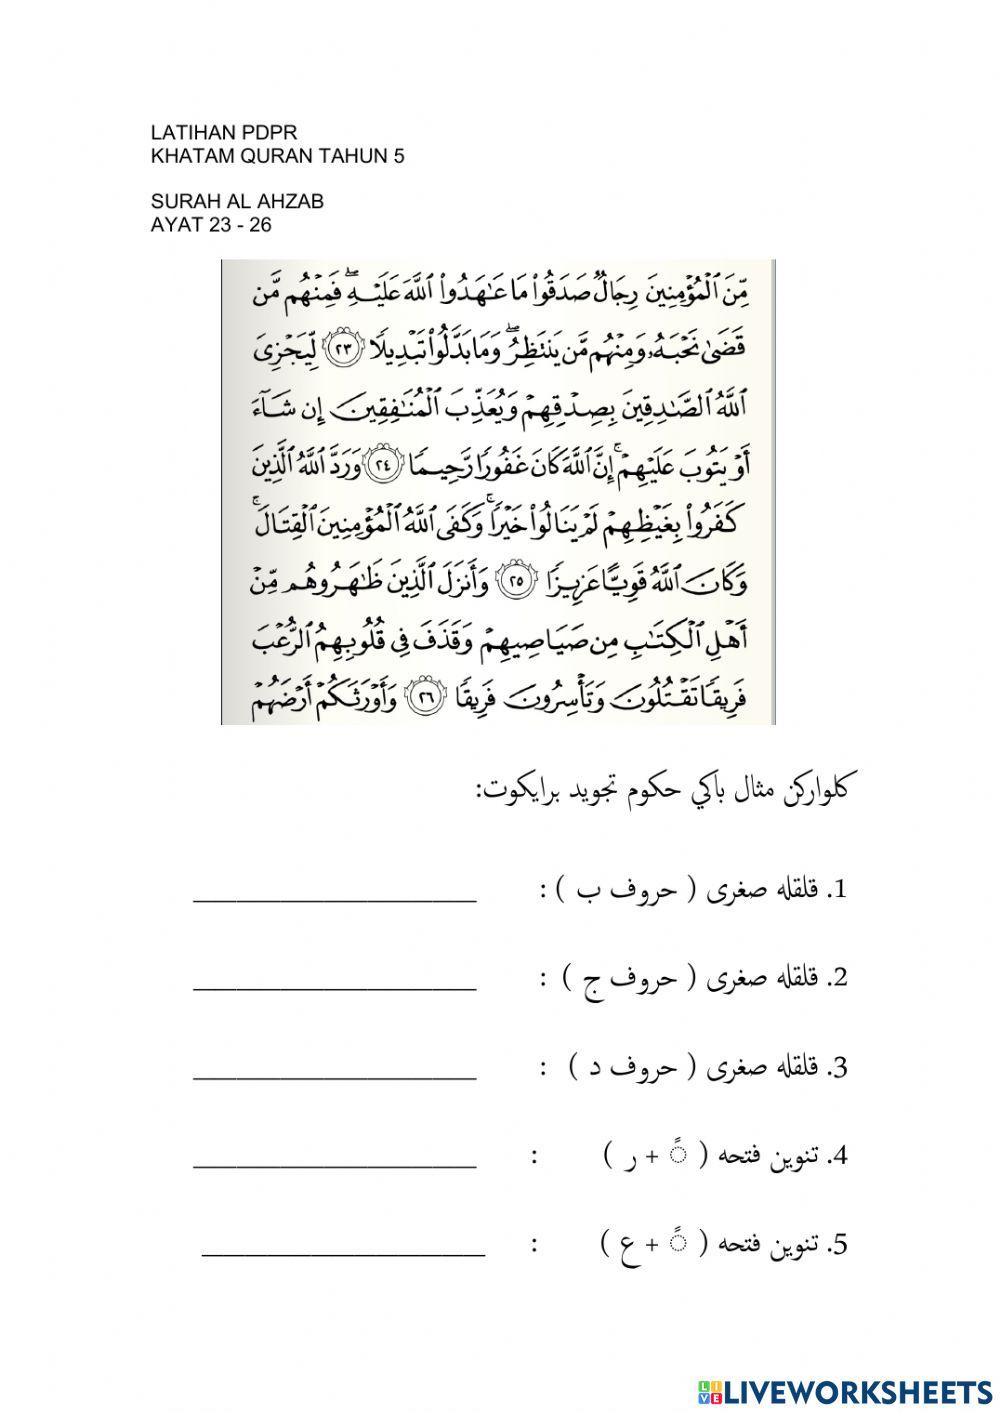 LATIHAN PDPR
KHATAM QURAN TAHUN 5
SURAH AL AHZAB
AYAT 23 - 26
مِّنَ ٱلْمُؤْمِنِينَ رِجَالٌ صَدَقُوا۟ مَا عَـٰهَدُوا۟ ٱللَّهَ عَلَيْهِ ۖ فَمِنْهُم مَّن
قَضَىٰ نَحْبَهُۥ وَمِنْهُم مَّن يَنتَظِرُ ۖ وَمَا بَدَّلُوا۟ تَبْدِيلًا ٢٣ لِّيَجْزِىَ
ٱللَّهُ ٱلصَّـٰدِقِينَ بِصِدْقِهِمْ وَيُعَذِّبَ ٱلْمُنَـٰفِقِينَ إِن شَآءَ
أَوْ يَتُوبَ عَلَيْهِمْ ۚ إِنَّ ٱللَّهَ كَانَ غَفُورًا رَّحِيمًا ٢٤ وَرَدَّ ٱللَّهُ ٱلَّذِينَ
كَفَرُوا۟ بِغَيْظِهِمْ لَمْ يَنَالُوا۟ خَيْرًا ۚ وَكَفَى ٱللَّهُ ٱلْمُؤْمِنِينَ ٱلْقِتَالَ ۚ
وَكَانَ ٱللَّهُ قَوِيًّا عَزِيزًا ٢٥ وَأَنزَلَ ٱلَّذِينَ ظَـٰهَرُوهُم مِّنْ
أَهْلِ ٱلْكِتَـٰبِ مِن صَيَاصِيهِمْ وَقَذَفَ فِى قُلُوبِهِمُ ٱلرُّعْبَ
فَرِيقًا تَقْتُلُونَ وَتَأْسِرُونَ فَرِيقًا ٢٦ وَأَوْرَثَكُمْ أَرْضَهُمْ
كلواركن مثال باݢي حكوم تجويد برايكوت:
1. قلقله صغرى ( حروف ب ) : ____________________
2. قلقله صغرى ( حروف ج ) : ____________________
3. قلقله صغرى ( حروف د ) : ____________________
4. تنوين فتحه ( ◌ً + ر ) : ____________________
5. تنوين فتحه ( ◌ً + ع ) : ____________________
LIVEWORKSHEETS